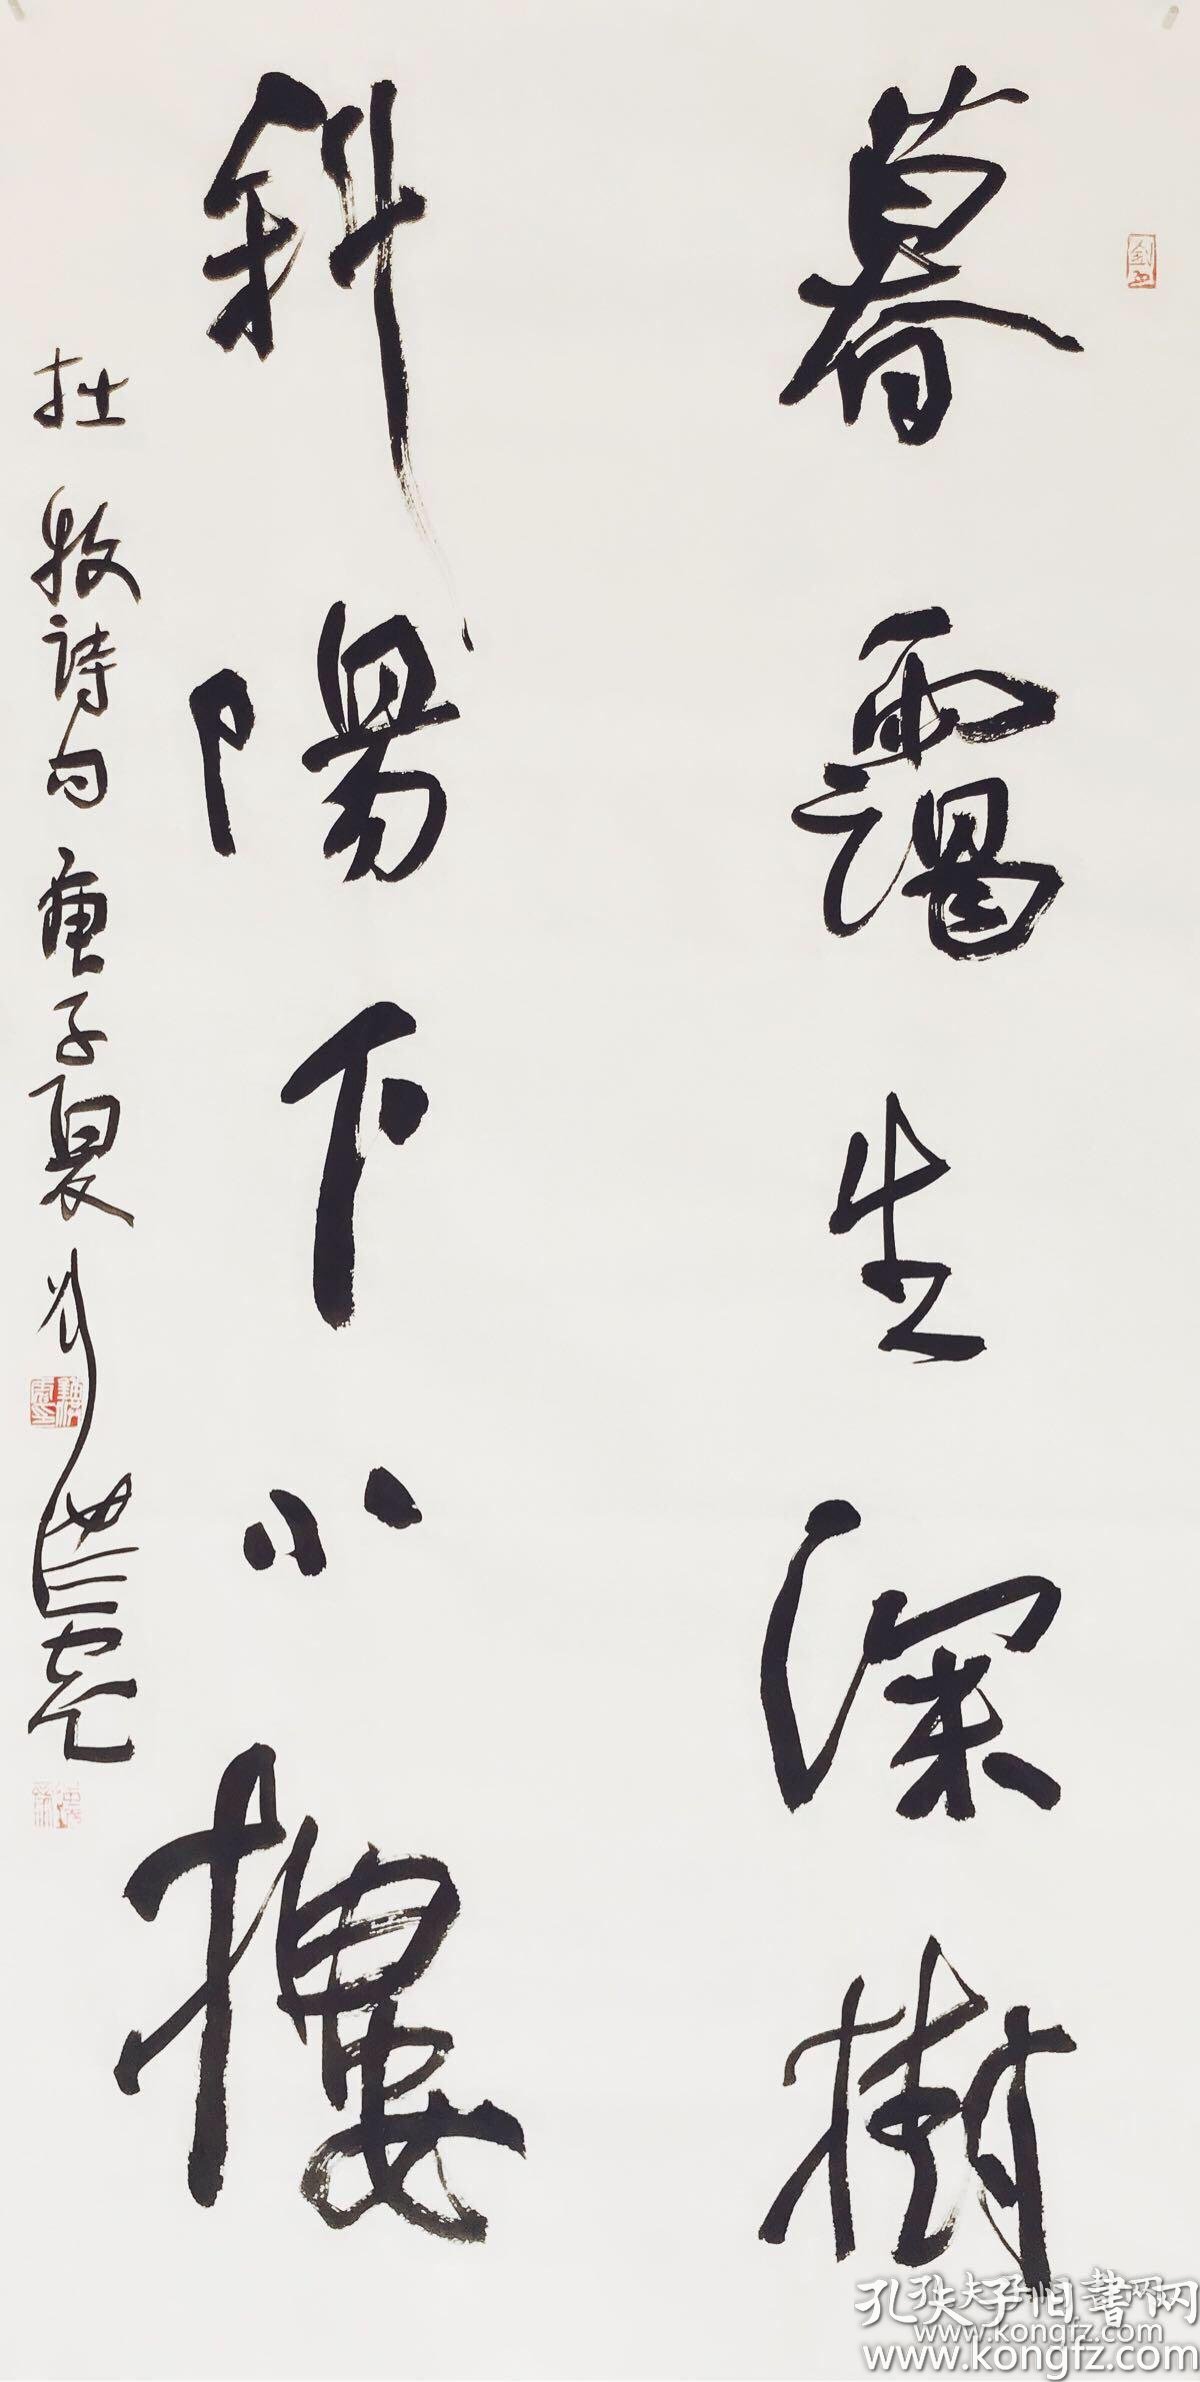 暮靄生深樹
斜陽下小樓
杜牧詩句 庚子夏 劉
孔夫子旧書网
www.kongfz.com
www.kongfz.com